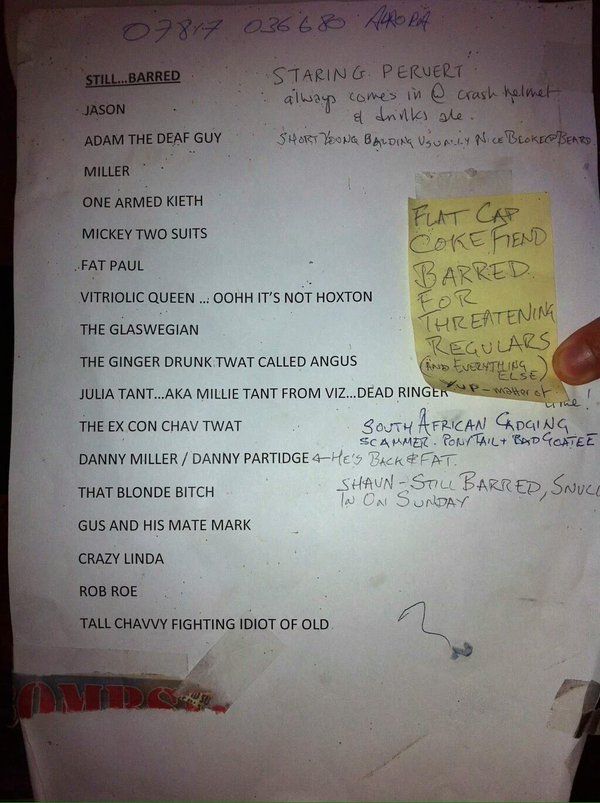 07817 036680 AURORA
STILL...BARRED
STARING PERVERT
always comes in @ crash helmet
& drinks ale.
JASON
ADAM THE DEAF GUY
SHORT YOUNG BALDING USUALLY NICE BLOKE & BEARD
MILLER
ONE ARMED KIETH
MICKEY TWO SUITS
FAT PAUL
VITRIOLIC QUEEN ... OOHH IT'S NOT HOXTON
THE GLASWEGIAN
THE GINGER DRUNK TWAT CALLED ANGUS
JULIA TANT...AKA MILLIE TANT FROM VIZ...DEAD RINGER
FLAT CAP
COKE FIEND
BARRED
FOR
THREATENING
REGULARS
(AND EVERYTHING
ELSE)
YUP - matter of
time!
THE EX CON CHAV TWAT
SOUTH AFRICAN CADGING
SCAMMER. PONYTAIL + BAD GOATEE
DANNY MILLER / DANNY PARTIDGE ← HE'S BACK & FAT.
THAT BLONDE BITCH
SHAUN - STILL BARRED, SNUCK
IN ON SUNDAY
GUS AND HIS MATE MARK
CRAZY LINDA
ROB ROE
TALL CHAVVY FIGHTING IDIOT OF OLD